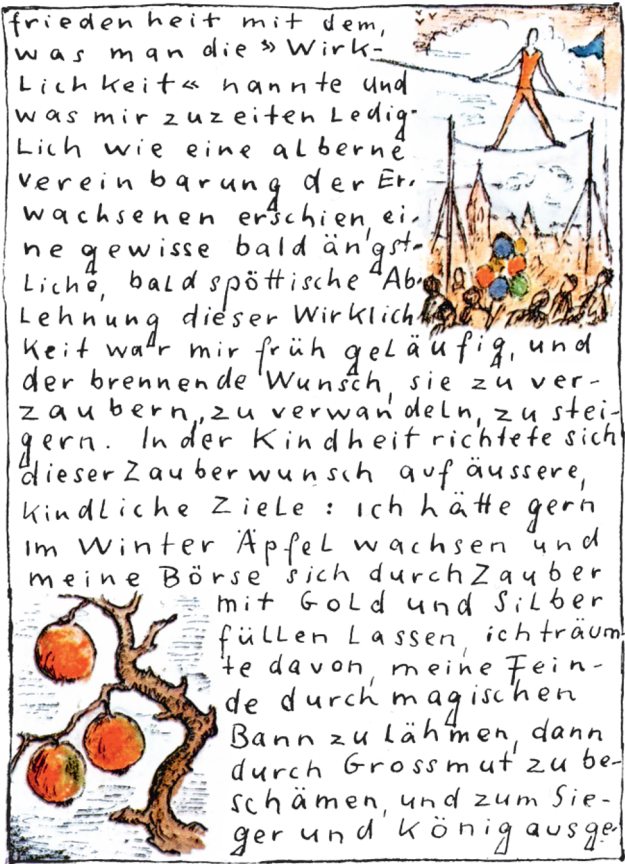 frieden heit mit dem,
was man die »Wirk-
Lichkeit« nannte und
was mir zuzeiten Ledig-
Lich wie eine alberne
verein barung der Er-
wachsenen erschien, ei-
ne gewisse bald ängst-
Liche, bald spöttische Ab-
Lehnung dieser Wirklich
keit war mir früh geläufig, und
der brennende Wunsch, sie zu ver-
zaubern, zu verwandeln, zu stei-
gern. In der Kindheit richtete sich
dieser Zauberwunsch auf äussere,
kindliche Ziele: ich hätte gern
im Winter Äpfel wachsen und
meine Börse sich durch Zauber
mit Gold und Silber
füllen Lassen, ich träum-
te davon, meine Fein-
de durch magischen
Bann zu lähmen, dann
durch Grossmut zu be-
schämen, und zum Sie-
ger und König ausge-